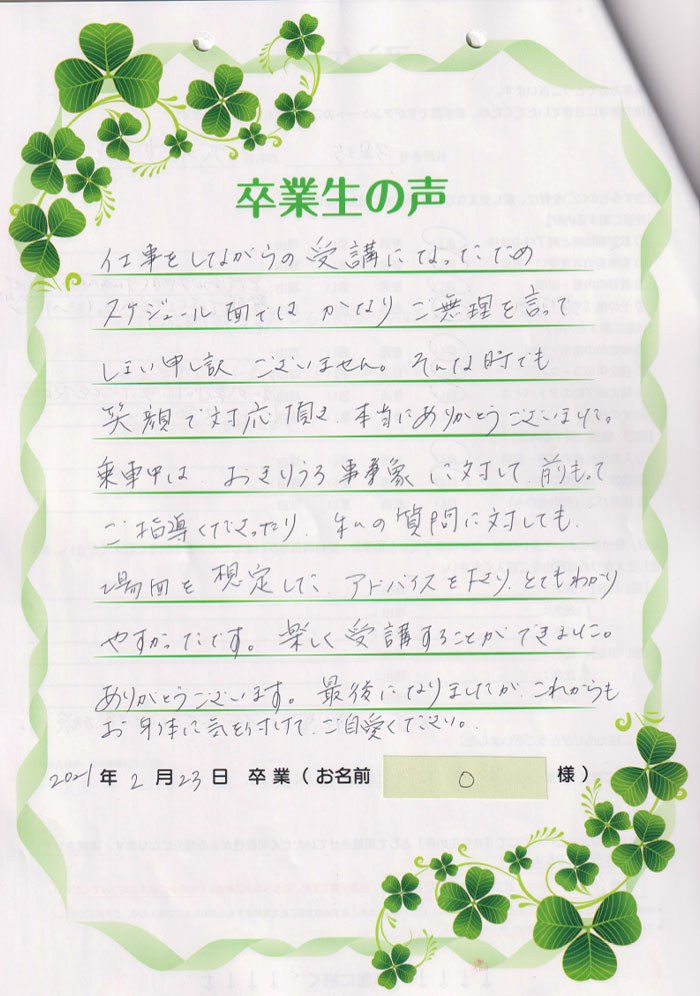 卒業生の声
仕事をしながらの受講になったため
スケジュール面ではかなりご無理を言って
しまい申し訳ございません。そんな時でも
笑顔で対応頂き本当にありがとうございました。
乗車中は、おきりうる事象に対して、前もって
ご指導くださったり、私の質問に対しても、
場面を想定した、アドバイスを下さり、とてもわかり
やすかったです。楽しく受講することができました。
ありがとうございます。最後になりましたが、これからも
お身体に気を付けて、ご自愛ください。
2021年2月23日 卒業(お名前 O 様)